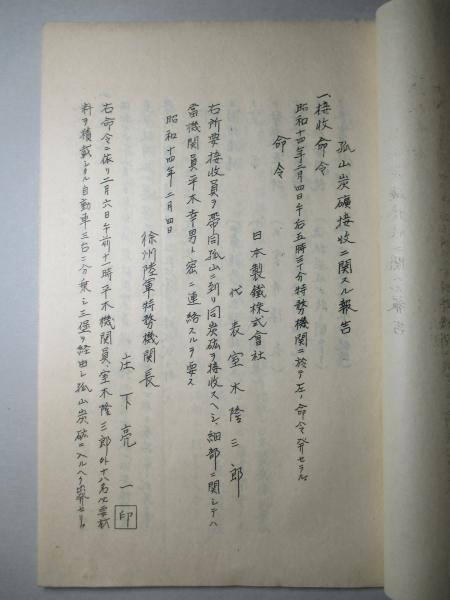 孤山炭礦接收ニ関スル報告
一、接收命令
昭和十四年二月四日午后五時三十分特務機関ニ於テ左ノ命令発セラル
命令
日本製鐵株式會社
代表室木隆三郎
右所要接收員ヲ帶同孤山ニ到リ同炭礦ヲ接收スヘシ、細部ニ関シテハ
當機関員平木幸男ト密ニ連絡スルヲ要ス
昭和十四年二月四日
徐州陸軍特務機関長
庄下亮一 印
右命令ニ依リ二月六日午前十一時平木機関員室木隆三郎外十八名必要材
料ヲ積載シタル自動車三台ニ分乗シ三堡ヲ経由シ孤山炭礦ニ入ルヘク出発セリ